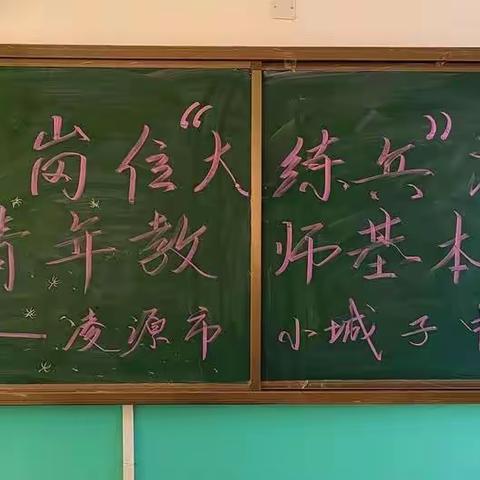 岗位“大练兵”
青年教师基本
—凌源市小城子中